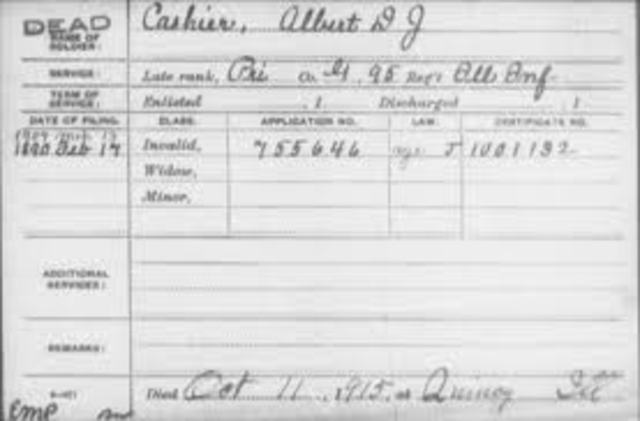 DEAD
NAME OF SOLDIER:
Cashier, Albert D J
SERVICE:
Late rank, Pri Co. G, 95 Reg't Ills Inf
TERM OF SERVICE:
Enlisted , 1 Discharged , 1
DATE OF FILING. CLASS. APPLICATION NO. LAW. CERTIFICATE NO.
1890 Feb 17 Invalid, 755646 J 1001132
Widow,
Minor,
ADDITIONAL SERVICES:
REMARKS:
Died Oct 11, 1915, at Quincy Ill